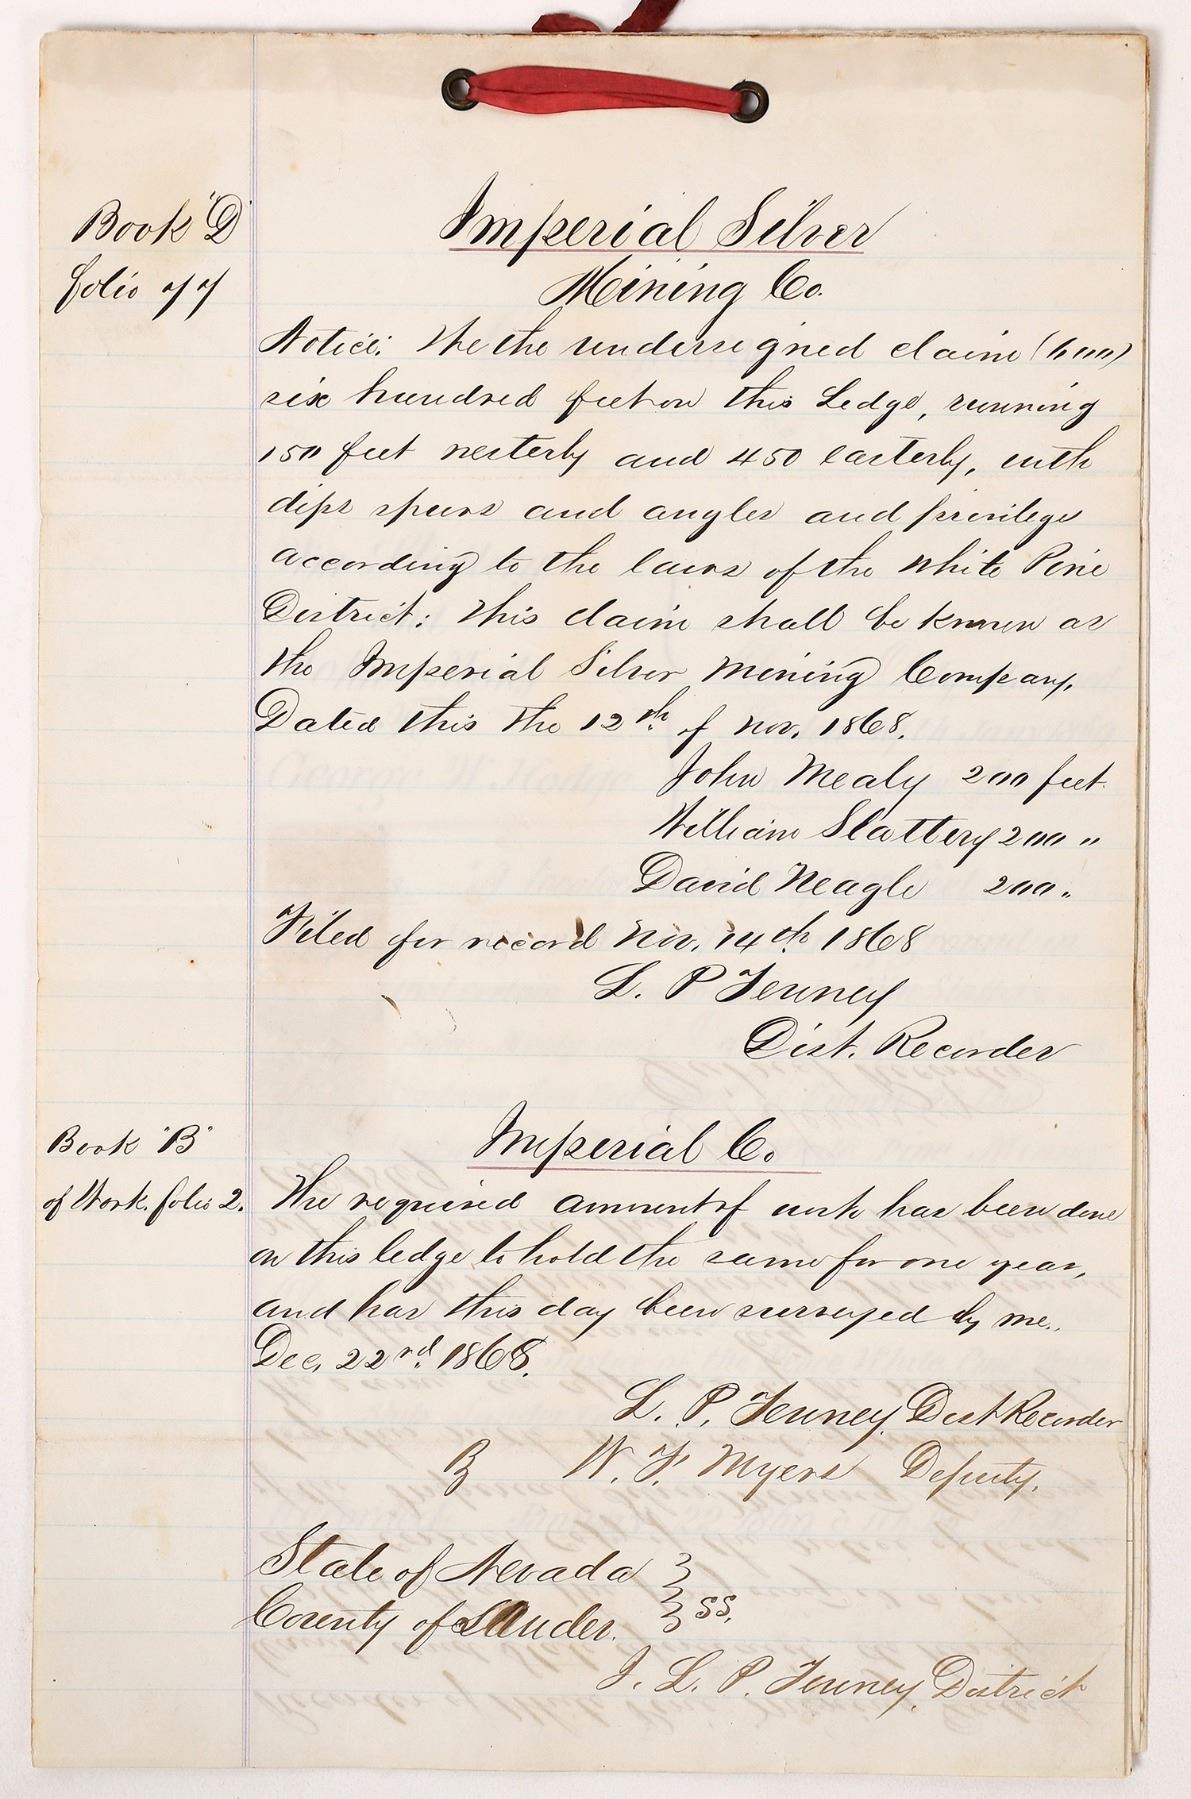 Book "D"
folio 77
Imperial Silver
Mining Co.
Notice: We the undersigned claim (600)
six hundred feet on this Ledge, running
150 feet westerly and 450 easterly, with
dips spurs and angles and privilege
according to the laws of the White Pine
District: this claim shall be known as
the Imperial Silver Mining Company,
Dated this the 12th of Nov. 1868.
John Mealy 200 feet
William Slattery 200 "
David Neagle 200 "
Filed for record Nov. 14th 1868
L. P. Tenney
Dist. Recorder
Book "B"
of Work. folio 2.
Imperial Co.
The required amount of work has been done
on this ledge to hold the same for one year,
and has this day been surveyed by me.
Dec. 22nd. 1868.
L. P. Tenney, Dist Recorder
By W. F. Myers Deputy.
State of Nevada }
County of Lander. } SS.
I. L. P. Tenney, District